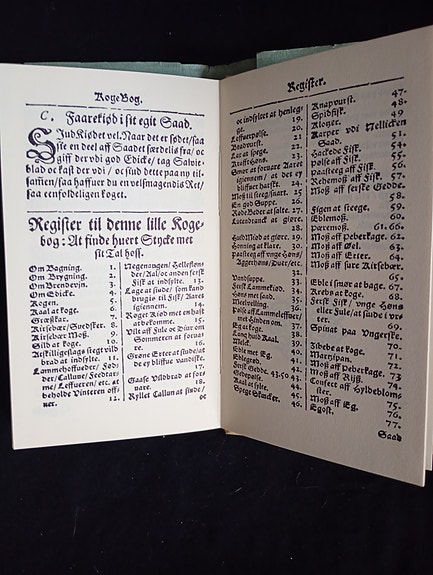 KogeBog.
C. Faarekiød i sit egit Saad.
SJud Kiødet vel. Naar det er sødet/saa
sie en deel aff Saadet særdelis fra/oc
giff der vdi god Edicke/tag Salvie-
blad oc kast der vdi/oc siud dette paa ny til-
sam̃en/saa haffuer du en velsmagendis Ret/
saa eenfoldeligen koget.
Register til denne lille Koge-
bog: At finde huert Stycke met
sit Tal hoss.
Om Bagning. 1.
Om Brygning. 2.
Om Brendevjn. 3.
Om Edicke. 4.
Rogen. 5.
Raal at koge. 6.
Græskar. 7.
Kirsebær/Suedsker. 8.
Kirsebær Moß. 9.
Sild at koge. 10.
Atskilligeslags stegt vild
brad at indsylte. 11.
Lammehoffueder/Fød-
der/Callune/
mer/Leffueren/etc. at
beholde Vinteren off-
uer. 12.
Negenaugen/
der/Aal/oc anden fersk
Fisk at indsylte. 13.
Lage at siude/som kand
brugis til Fisk/Aaret
igiennem. 14.
Roget Kiød met en hast
at bekomme. 15.
Vilt aff Fule oc Diur om
Sommeren at forua-
re. 16.
Grøne Erter at siude/at
de ey bliffue vandske.
17.
Gaase Vildbrad at for-
vare. 18.
Ryllet Callun at siude/
oc
Register.
oc indsylte at henleg-
ge. 19.
Leffuerpølse. 20.
Bradvurst. 21.
Lar at spege. 22.
Krafft Høns. 23.
Smør at foruare Aaret
igiennem/at det ey
bliffuer harsk. 24.
Moß til steeg/snart. 25.
En god Suppe. 26.
Røde Beder at salte. 27.
Lutendranck at giøre.
28.
Huid Miød at giøre. 19.
Honning at klare. 30.
Paasteeg aff vnge Høns/
Aggerhøns/Duer/etc.
31.
Vandsuppe. 32.
Fersk Lammekiød. 33.
Høns met saad. 34.
Melvelling. 35.
Polse aff Lammeleffuer/
met Hinden om. 36.
Eg at koge. 37.
Lønborg Raal. 38.
Melck. 39.
Eble met Eg. 40.
Eblegrød. 41.
Fersk Gedde. 42.
Gedepølse. 43.50
Raal at salte. 44.
Spege Skincker. 45.
46.
Knapvurst. 47.
Spidfisk. 48.
Kloster. 49.
Karper vdi Nellicken 50.
Saad. 51.
Hackede Fisk. 52.
pølse aff Fisk. 53.
paasteeg aff Fisk. 54.
Redemoß aff Fisk. 55.
Moß aff ferske Gedde. 56.
57.
58.
Figen at steege. 59.
Eblemoß. 60.
Pæremoß. 61. 66.
Moß aff Peberkage. 62.
Moß aff Øel. 63.
Moß aff Erter. 64.
Moß aff sure Kirsebær.
65.
Eble i smør at bage. 67.
Krebs at koge. 68.
Fersk Fisk/vnge Høns
eller Fule/at siude i vr-
ter. 69.
Spinat paa Vngerske.
70.
Tidebe at koge. 71.
Martzipan. 72.
Moß aff Peberkage. 73
Moß aff Rijß. 74.
Confect aff Hyldeblom-
ster. 75.
Moß aff Eg. 76.
Egost. 77.
Saad